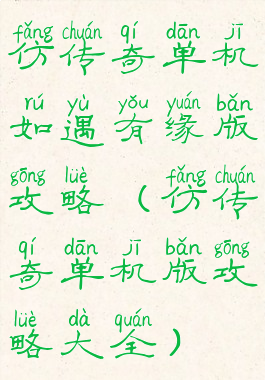 fǎng chuán qí dān jī
仿传奇单机
rú yù yǒu yuán bǎn
如遇有缘版
gōng lüè fǎng chuán
攻略（仿传
qí dān jī bǎn gōng
奇单机版攻
lüè dà quán
略大全）